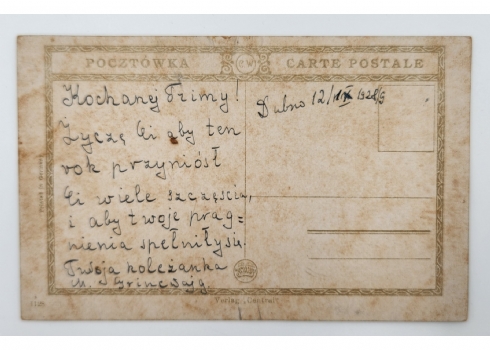 POCZTÓWKA
CARTE POSTALE
Kochanej Fzimy!
Życzę Ci aby ten
rok przyniósł
Ci wiele szczęścia,
i aby twoje prag-
nienia spełniły się.
Twoja koleżanka
M.
Dubno 12/ 1928
Verlag „Central"